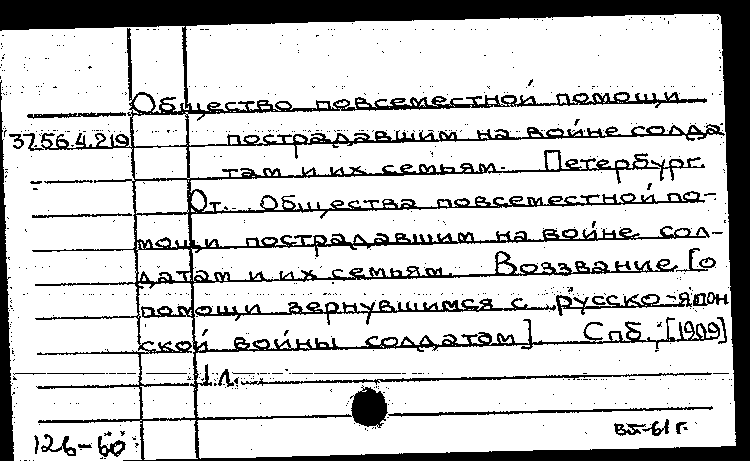 Общество повсеместной помощи
37.56.4.219 пострадавшим на войне солда
там и их семьям. Петербург.
От Общества повсеместной по-
мощи пострадавшим на войне сол-
датам и их семьям. Воззвание [о
помощи вернувшимся с русско-япон
ской войны солдатам]. Спб., [1909]
1 л.
126-60